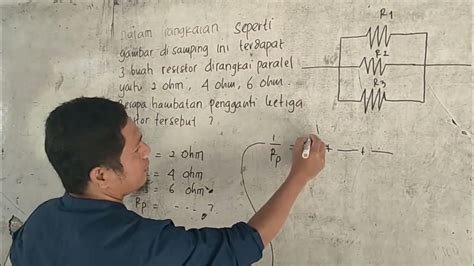 Dalam rangkaian seperti
gambar di samping ini terdapat
3 buah resistor dirangkai paralel
yaitu 2 ohm, 4 ohm, 6 ohm.
Berapa hambatan pengganti ketiga
tersebut ?
R1
R2
R3
= 2 ohm
= 4 ohm
= 6 ohm
Rp = - - - - ?
1
Rp
= + +